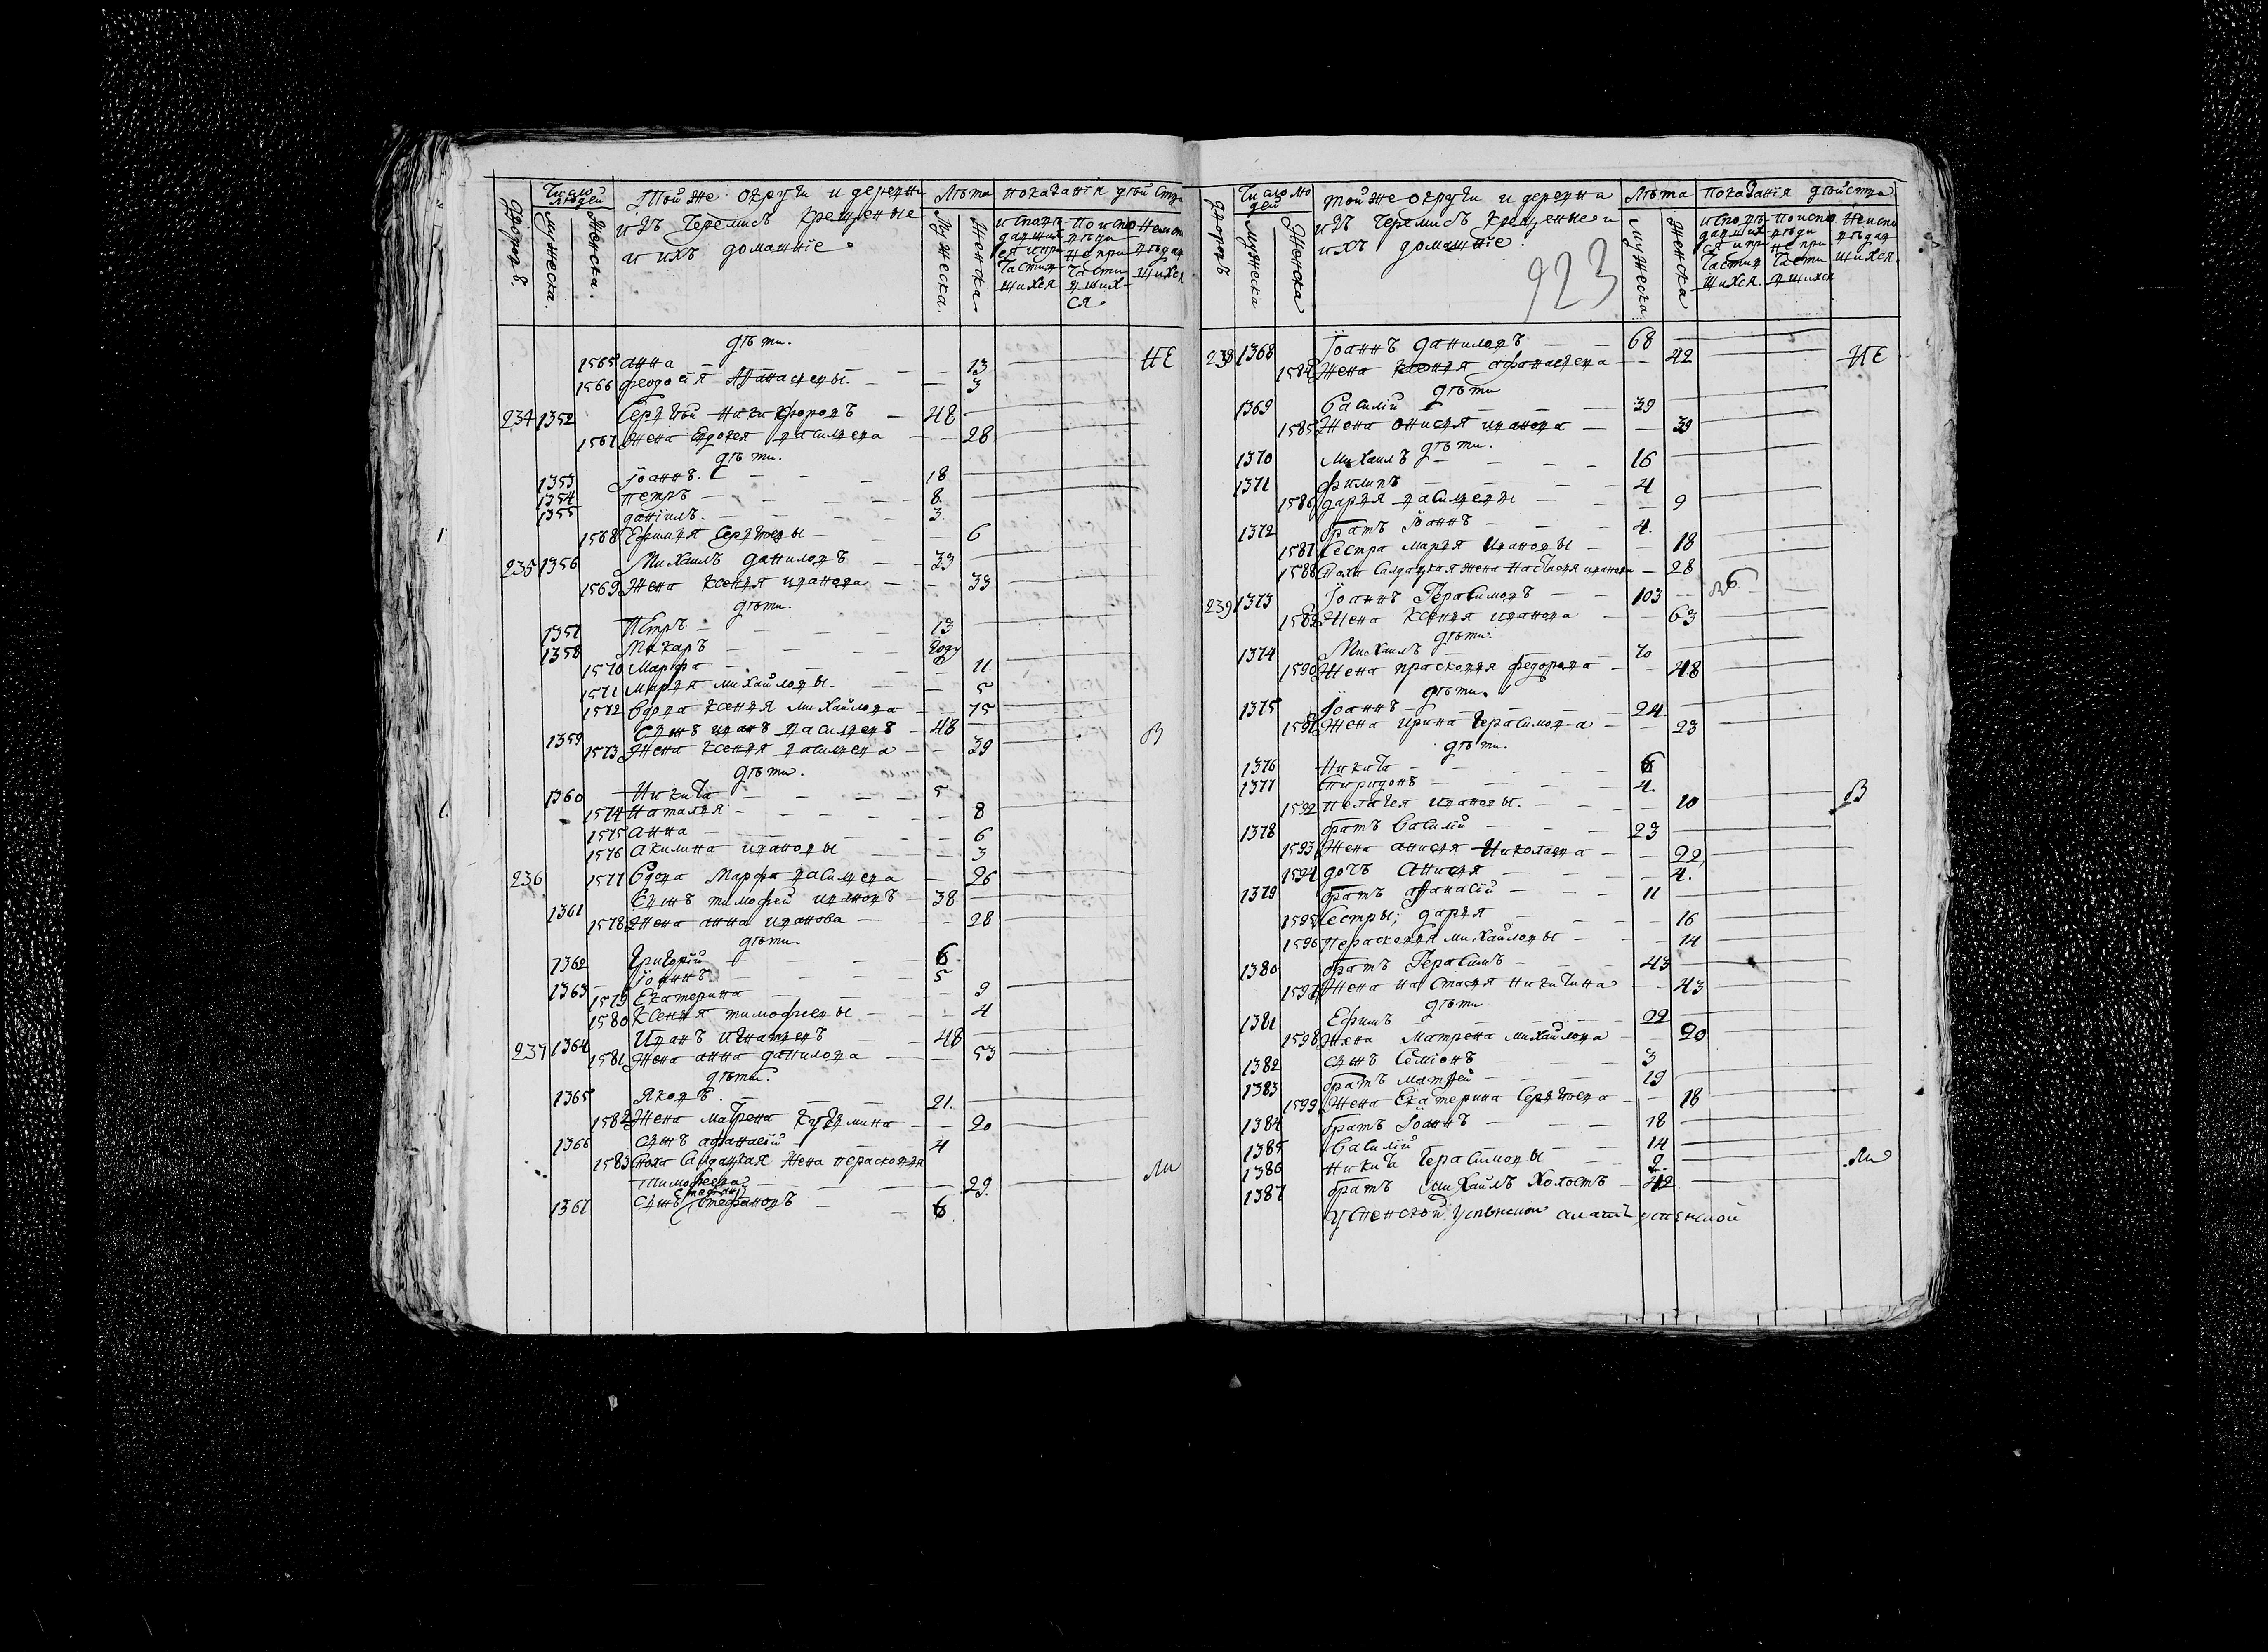 Дворовъ.
Число людей
Мужеска.
Женска.
Той же округи и деревни
изъ Черемисъ крещеные
и ихъ домашніе.
Лѣта
Мужеска.
Женска.
показанія дѣйств
исповѣдавшихся и причастившихся
По исповѣди не причастившихся.
Неисповѣдавшихся
дѣти.
1565 анна — 13 НЕ
1566 феодосія Афанасьевы. — 3
234 1352 Сергѣй Никифоровъ — 48
1567 Жена Евдокея Васильева — 28
дѣти.
1353 Іоаннъ. — 18
1354 петръ — 8.
1355 даніилъ. — 3.
1568 Ефимья Сергѣевы — 6
235 1356 Михаилъ даниловъ — 33
1569 Жена ксенья иванова — 33
дѣти.
1357 Петръ — 13
1358 Макаръ — году
1570 Марфа — 11.
1571 марья михайловы. — 5
1572 вдова ксенья михайлова — 75
1359 Сынъ иванъ васильевъ — 48 В
1573 Жена ксенья васильева — 39
дѣти.
1360 Никита — 5
1574 Наталья — 8
1575 анна — 6
1576 акилина ивановы — 3
236 1577 вдова Марфа васильева — 26
1361 Сынъ тимофей ивановъ — 38
1578 Жена анна иванова — 28
дѣти.
1362 Григорій — 6.
1363 Іоаннъ — 5
1579 Екатерина — 9
1580 Ксенья тимофеевы — 4
237 1364 Иванъ игнатьевъ — 48
1581 Жена анна данилова — 53
дѣти.
1365 Яковъ. — 21.
1582 Жена матрена кузьмина — 20
1366 сынъ афанасій — 4
1583 сноха Салдацкая жена персковья Ли
тимофеева — 29.
1367 сынъ Стефановъ — 6
Дворовъ
Число людей
Мужеска
Женска
той же округи и деревни
изъ Черемисъ крещеные и
ихъ домашніе.
923
Лѣта
Мужеска.
Женска
показанія дѣйства
исповѣдавшихся и причастившихся.
по исповѣди не причастившихся
Неисповѣдавшихся.
238 1368 Іоаннъ даниловъ — 68
1584 Жена ксенья афанасьева — 42 НЕ
дѣти
1369 Василій — 39
1585 Жена онисья иванова — 39
дѣти.
1370 михаилъ — 16
1371 филипъ — 4
1586 дарья васильевы — 9
1372 братъ Іоаннъ — 4.
1587 Сестра марья ивановы — 18
1588 сноха салдацкая жена настасья иванова — 28
239 1373 Іоаннъ Герасимовъ — 103
1589 Жена ксенья иванова — 63
дѣти.
1374 Михаилъ — 70
1590 Жена прасковья федорова — 48
дѣти.
1375 Іоаннъ — 24.
1591 Жена ирина герасимова — 23
дѣти.
1376 Никита — 6
1377 спиридонъ — 4.
1592 пелагея ивановы. — 10 В
1378 братъ Василій — 23
1593 Жена анисья Николаева — 22
1594 дочъ Анисья — 4.
1379 братъ афанасій — 11
1595 Сестры; дарья — 16
1596 Персковья михайловы — 14
1380 братъ Герасимъ — 43
1597 Жена настасья никитина — 43
дѣти
1381 Ефимъ — 22
1598 Жена матрена михайлова — 20
1382 сынъ Семіонъ — 3
1383 братъ матвей — 19
1599 Жена Екатерина Сергѣева — 18
1384 братъ Іоаннъ — 18
1385 Василій — 14
1386 Никита Герасимовы — 2. Ли
1387 братъ михаилъ холостъ — 42